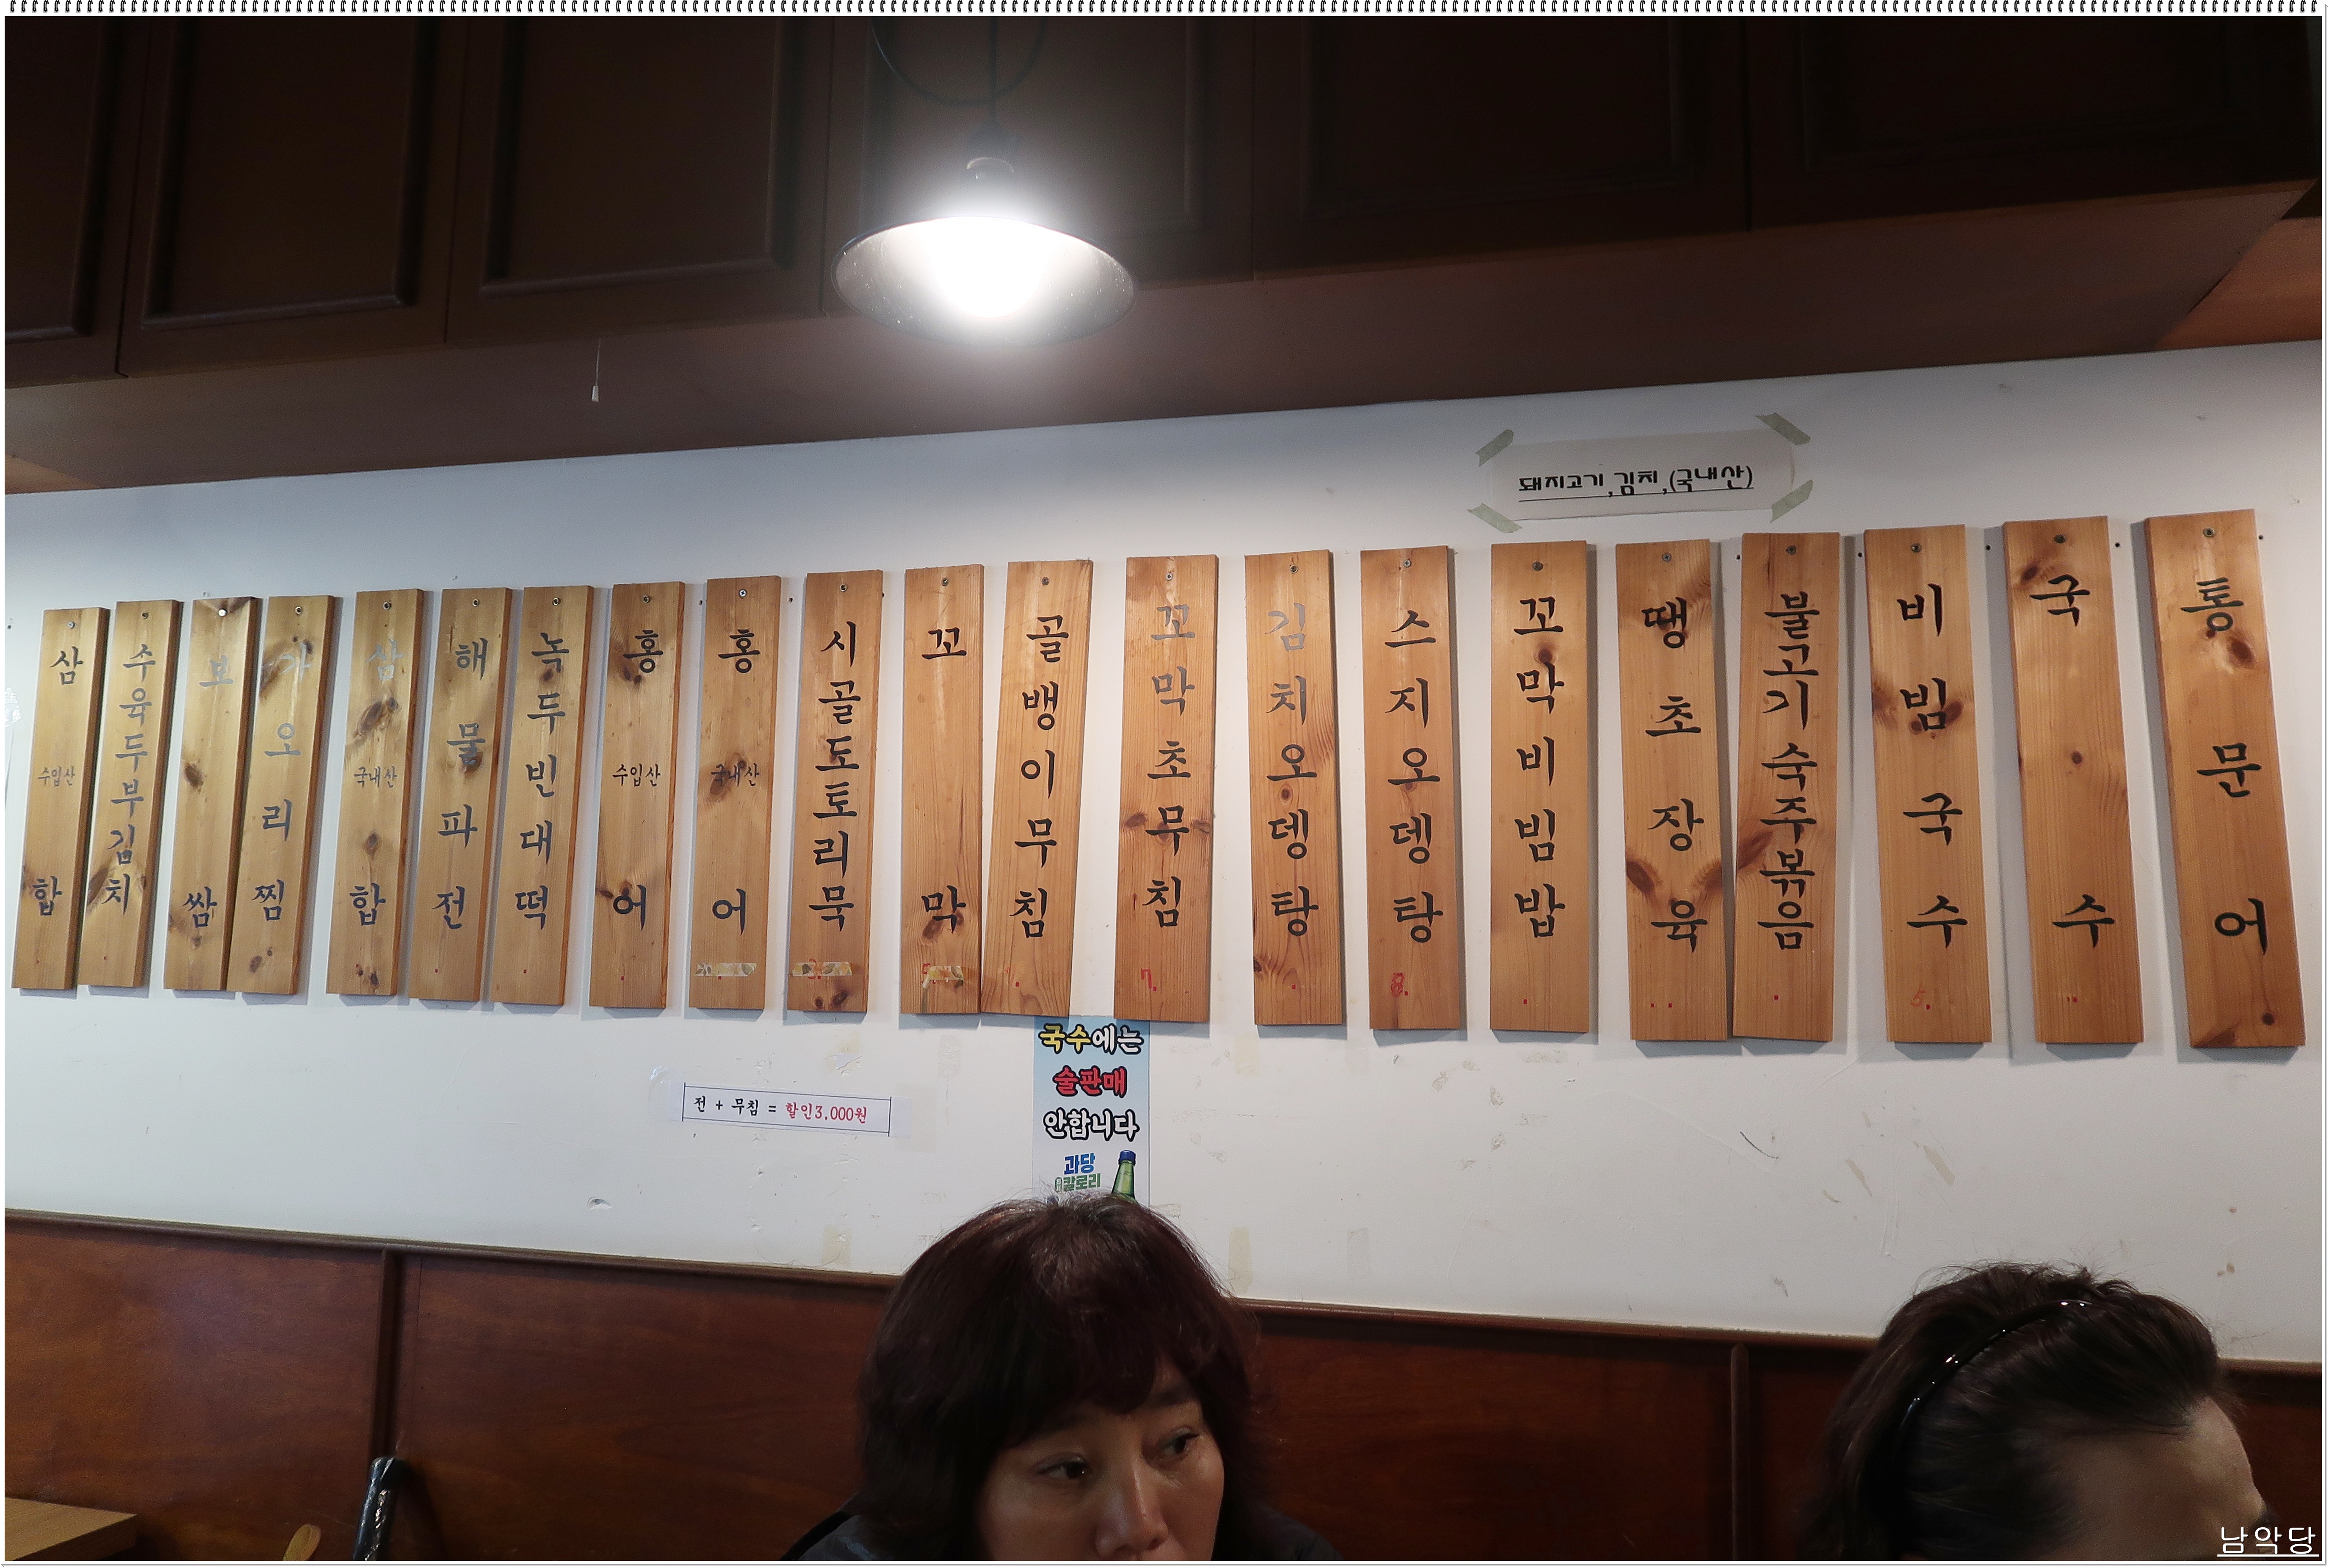 돼지고기,김치,(국내산)
삼합 수입산
수육두부김치
보쌈
가오리찜
삼합 국내산
해물파전
녹두빈대떡
홍어 수입산
홍어 국내산
시골도토리묵
꼬막
골뱅이무침
꼬막초무침
7.
김치오뎅탕
스지오뎅탕
8.
꼬막비빔밥
땡초장육
불고기숙주볶음
비빔국수
5.
국수
통문어
전 + 무침 = 할인3,000원
국수에는
술판매
안합니다
과당
칼로리
남악당